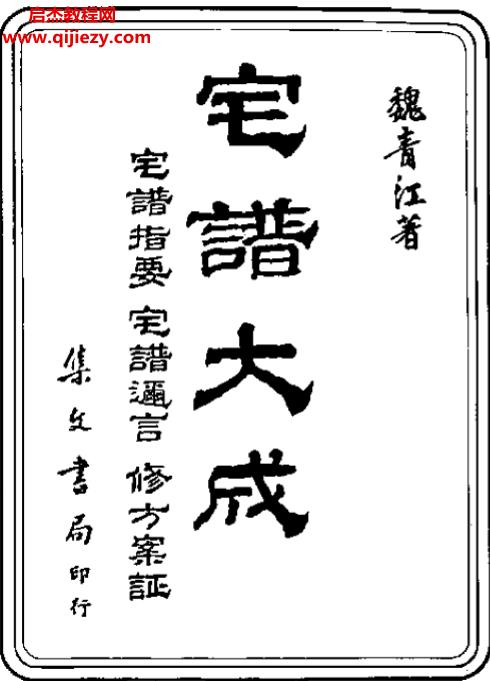 启杰教程网
www.qijiezy.com
魏青江著
宅譜大成
宅譜指要 宅譜邇言 修方案証
集文書局印行